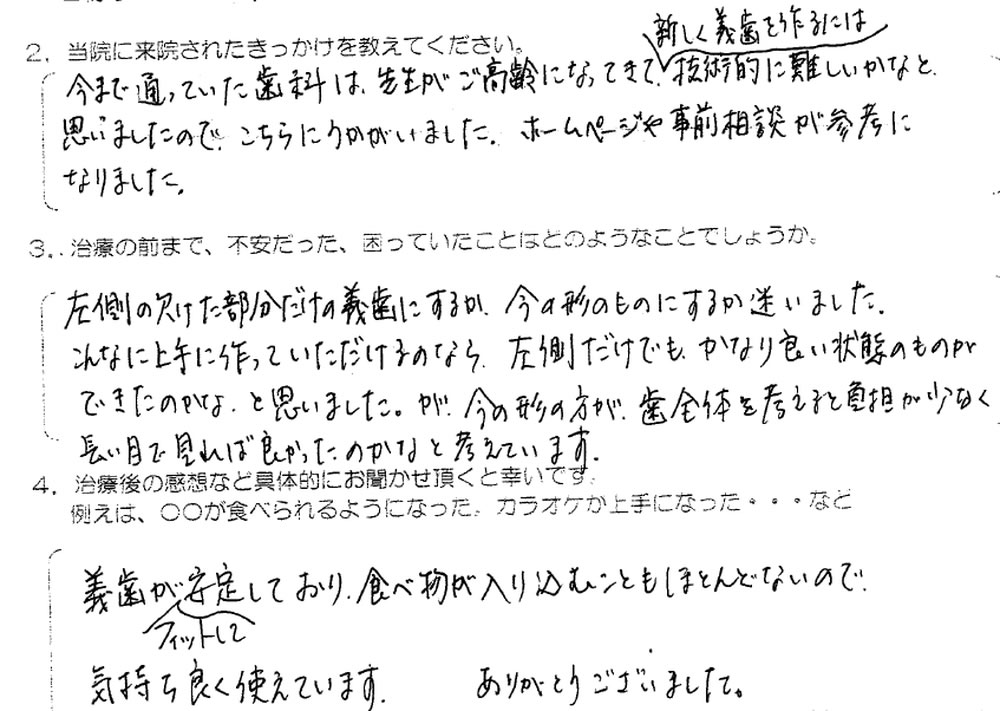 2. 当院に来院されたきっかけを教えてください。
新しく義歯を作るには
今まで通っていた歯科は、先生がご高齢になってきて、技術的に難しいかなと、
思いましたので、こちらにうかがいました。ホームページや事前相談が参考に
なりました。
3. 治療の前まで、不安だった、困っていたことはどのようなことでしょうか。
左側の欠けた部分だけの義歯にするか、今の形のものにするか迷いました。
こんなに上手に作っていただけるのなら、左側だけでも、かなり良い状態のものが
できたのかな、と思いました。が、今の形の方が、歯全体を考えると負担が少なく
長い目で見れば良かったのかなと考えています。
4. 治療後の感想など具体的にお聞かせ頂くと幸いです。
例えば、○○が食べられるようになった。カラオケが上手になった・・・など
義歯が安定しており、食べ物が入り込むこともほとんどないので、
フィットして
気持ち良く使えています。 ありがとうございました。